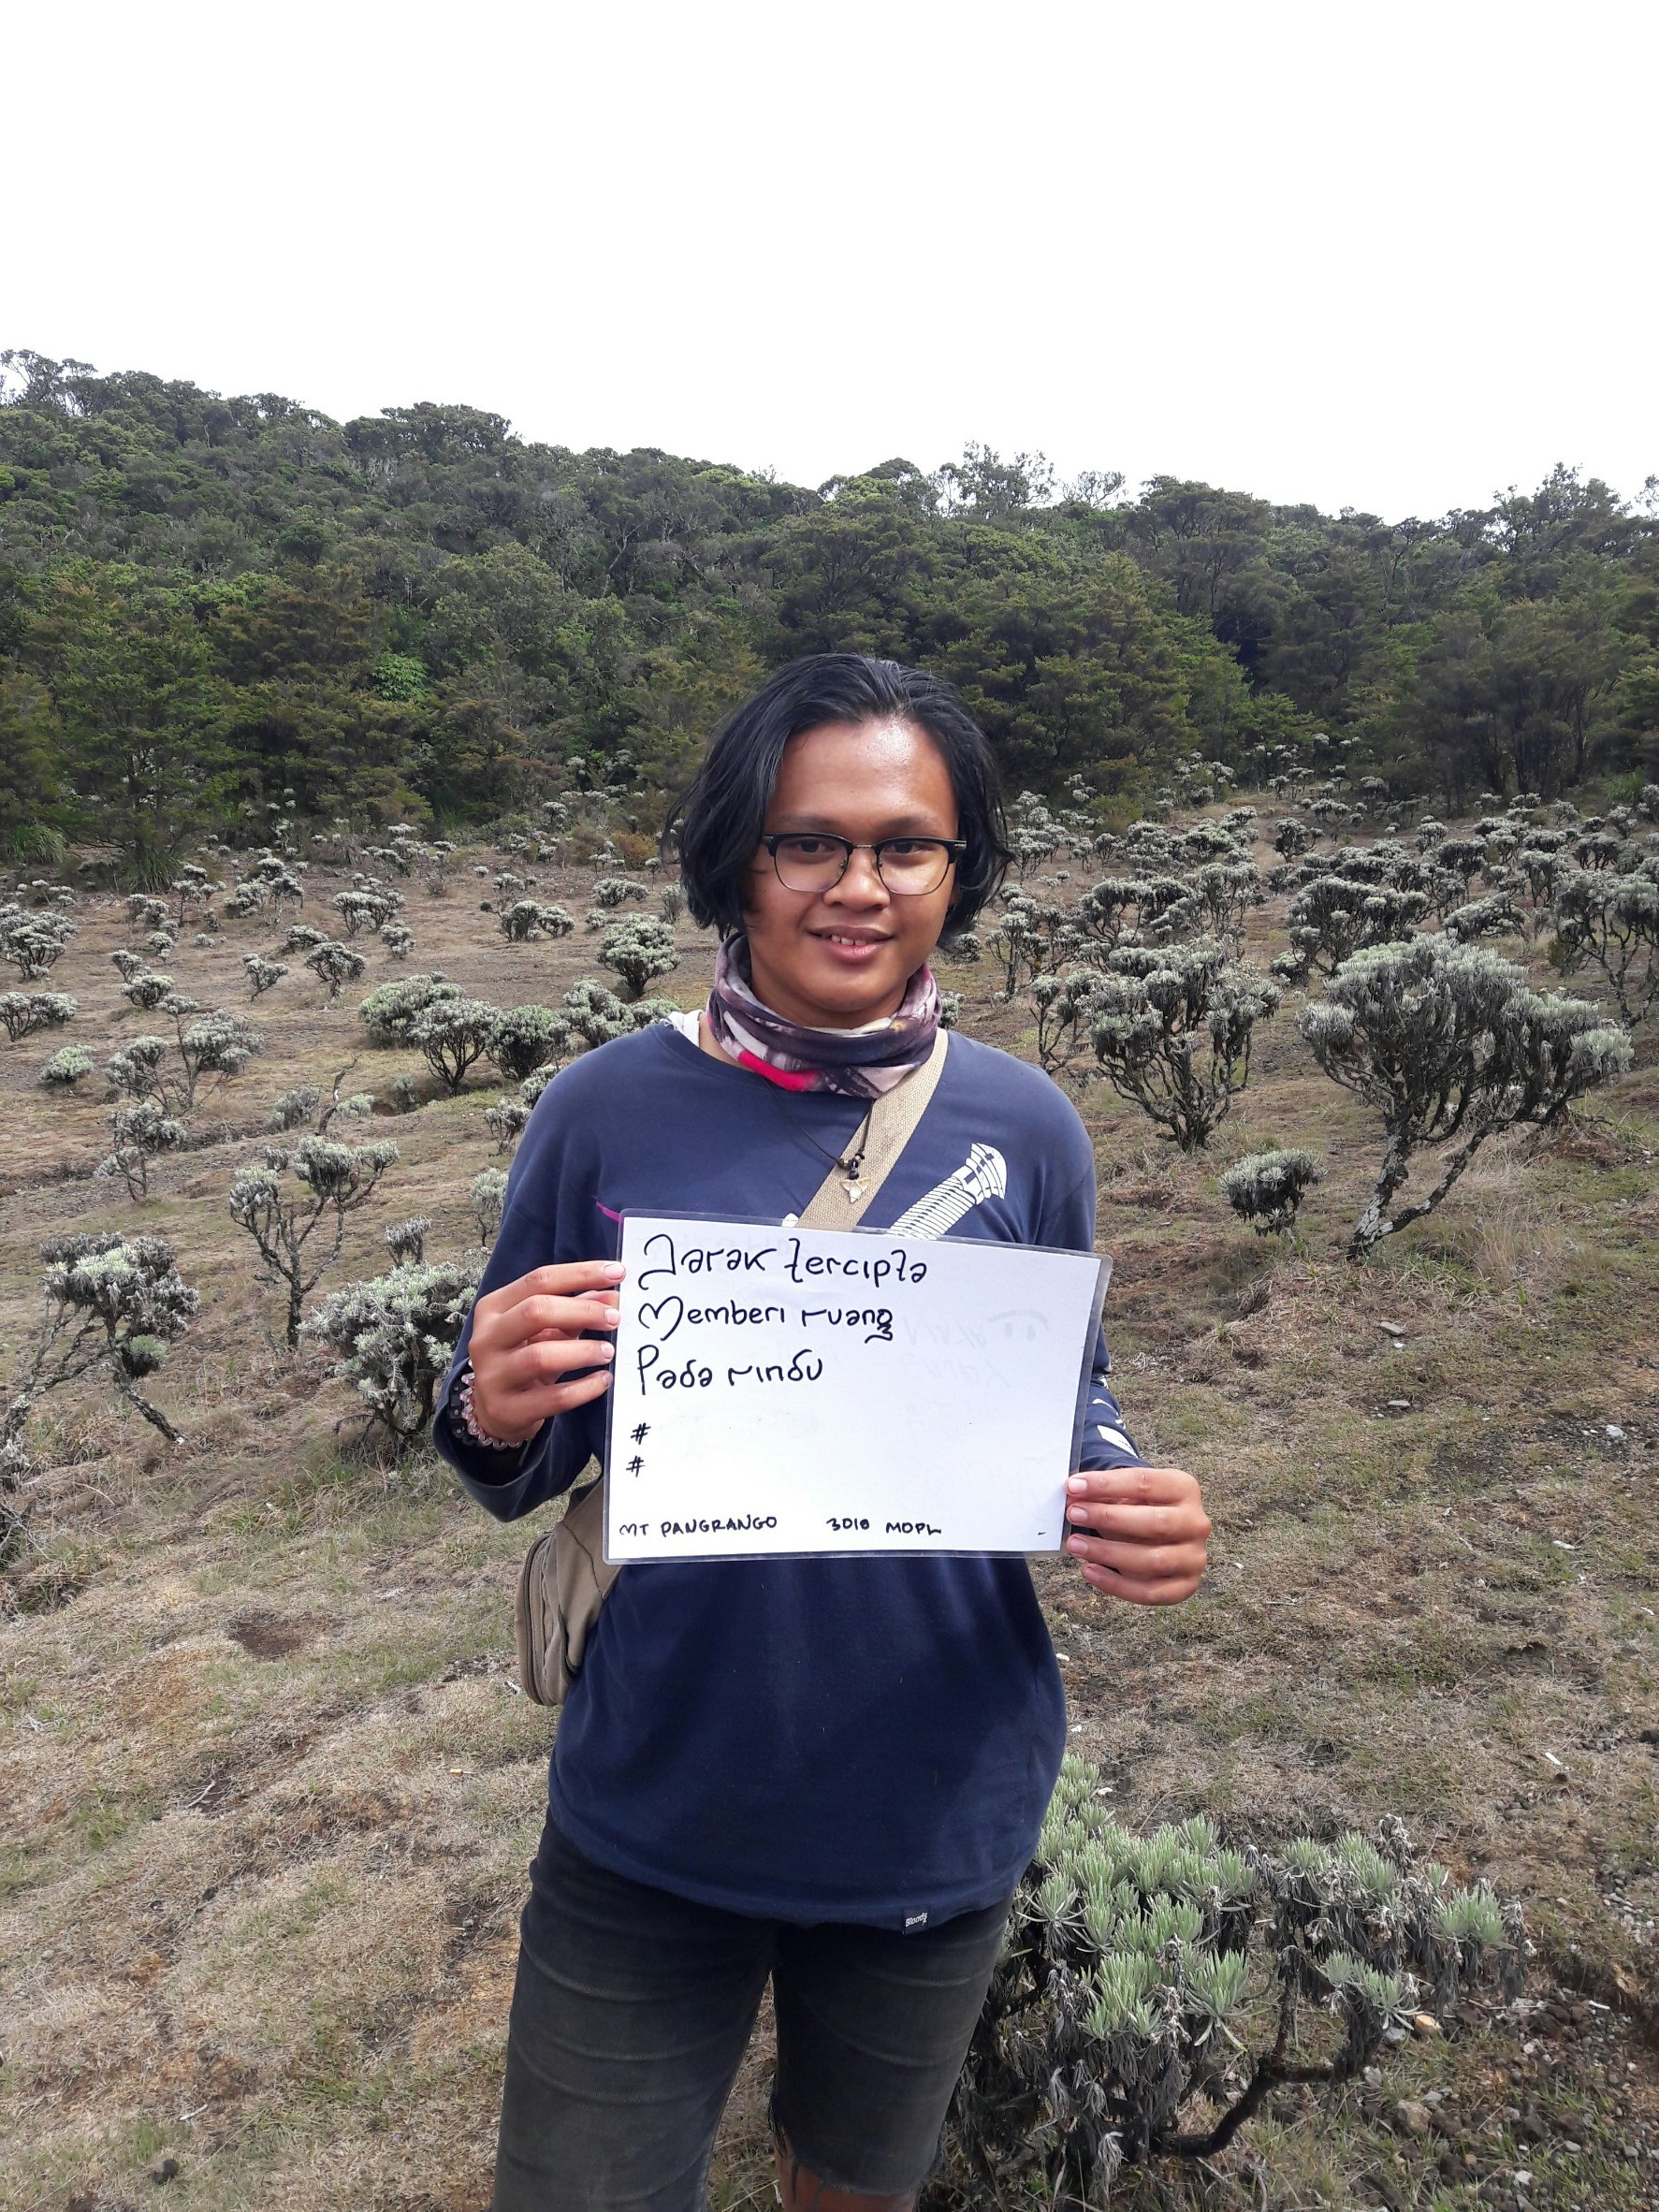 Jarak tercipta
Memberi ruang
Pada rindu
#
#
MT PANGRANGO 3018 MDPL
Bloods